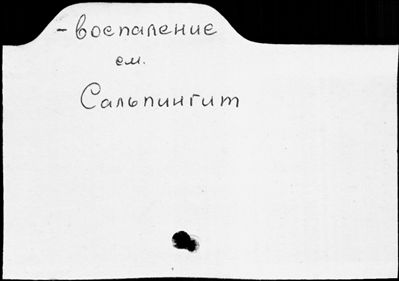 - воспаление
см.
Сальпингит